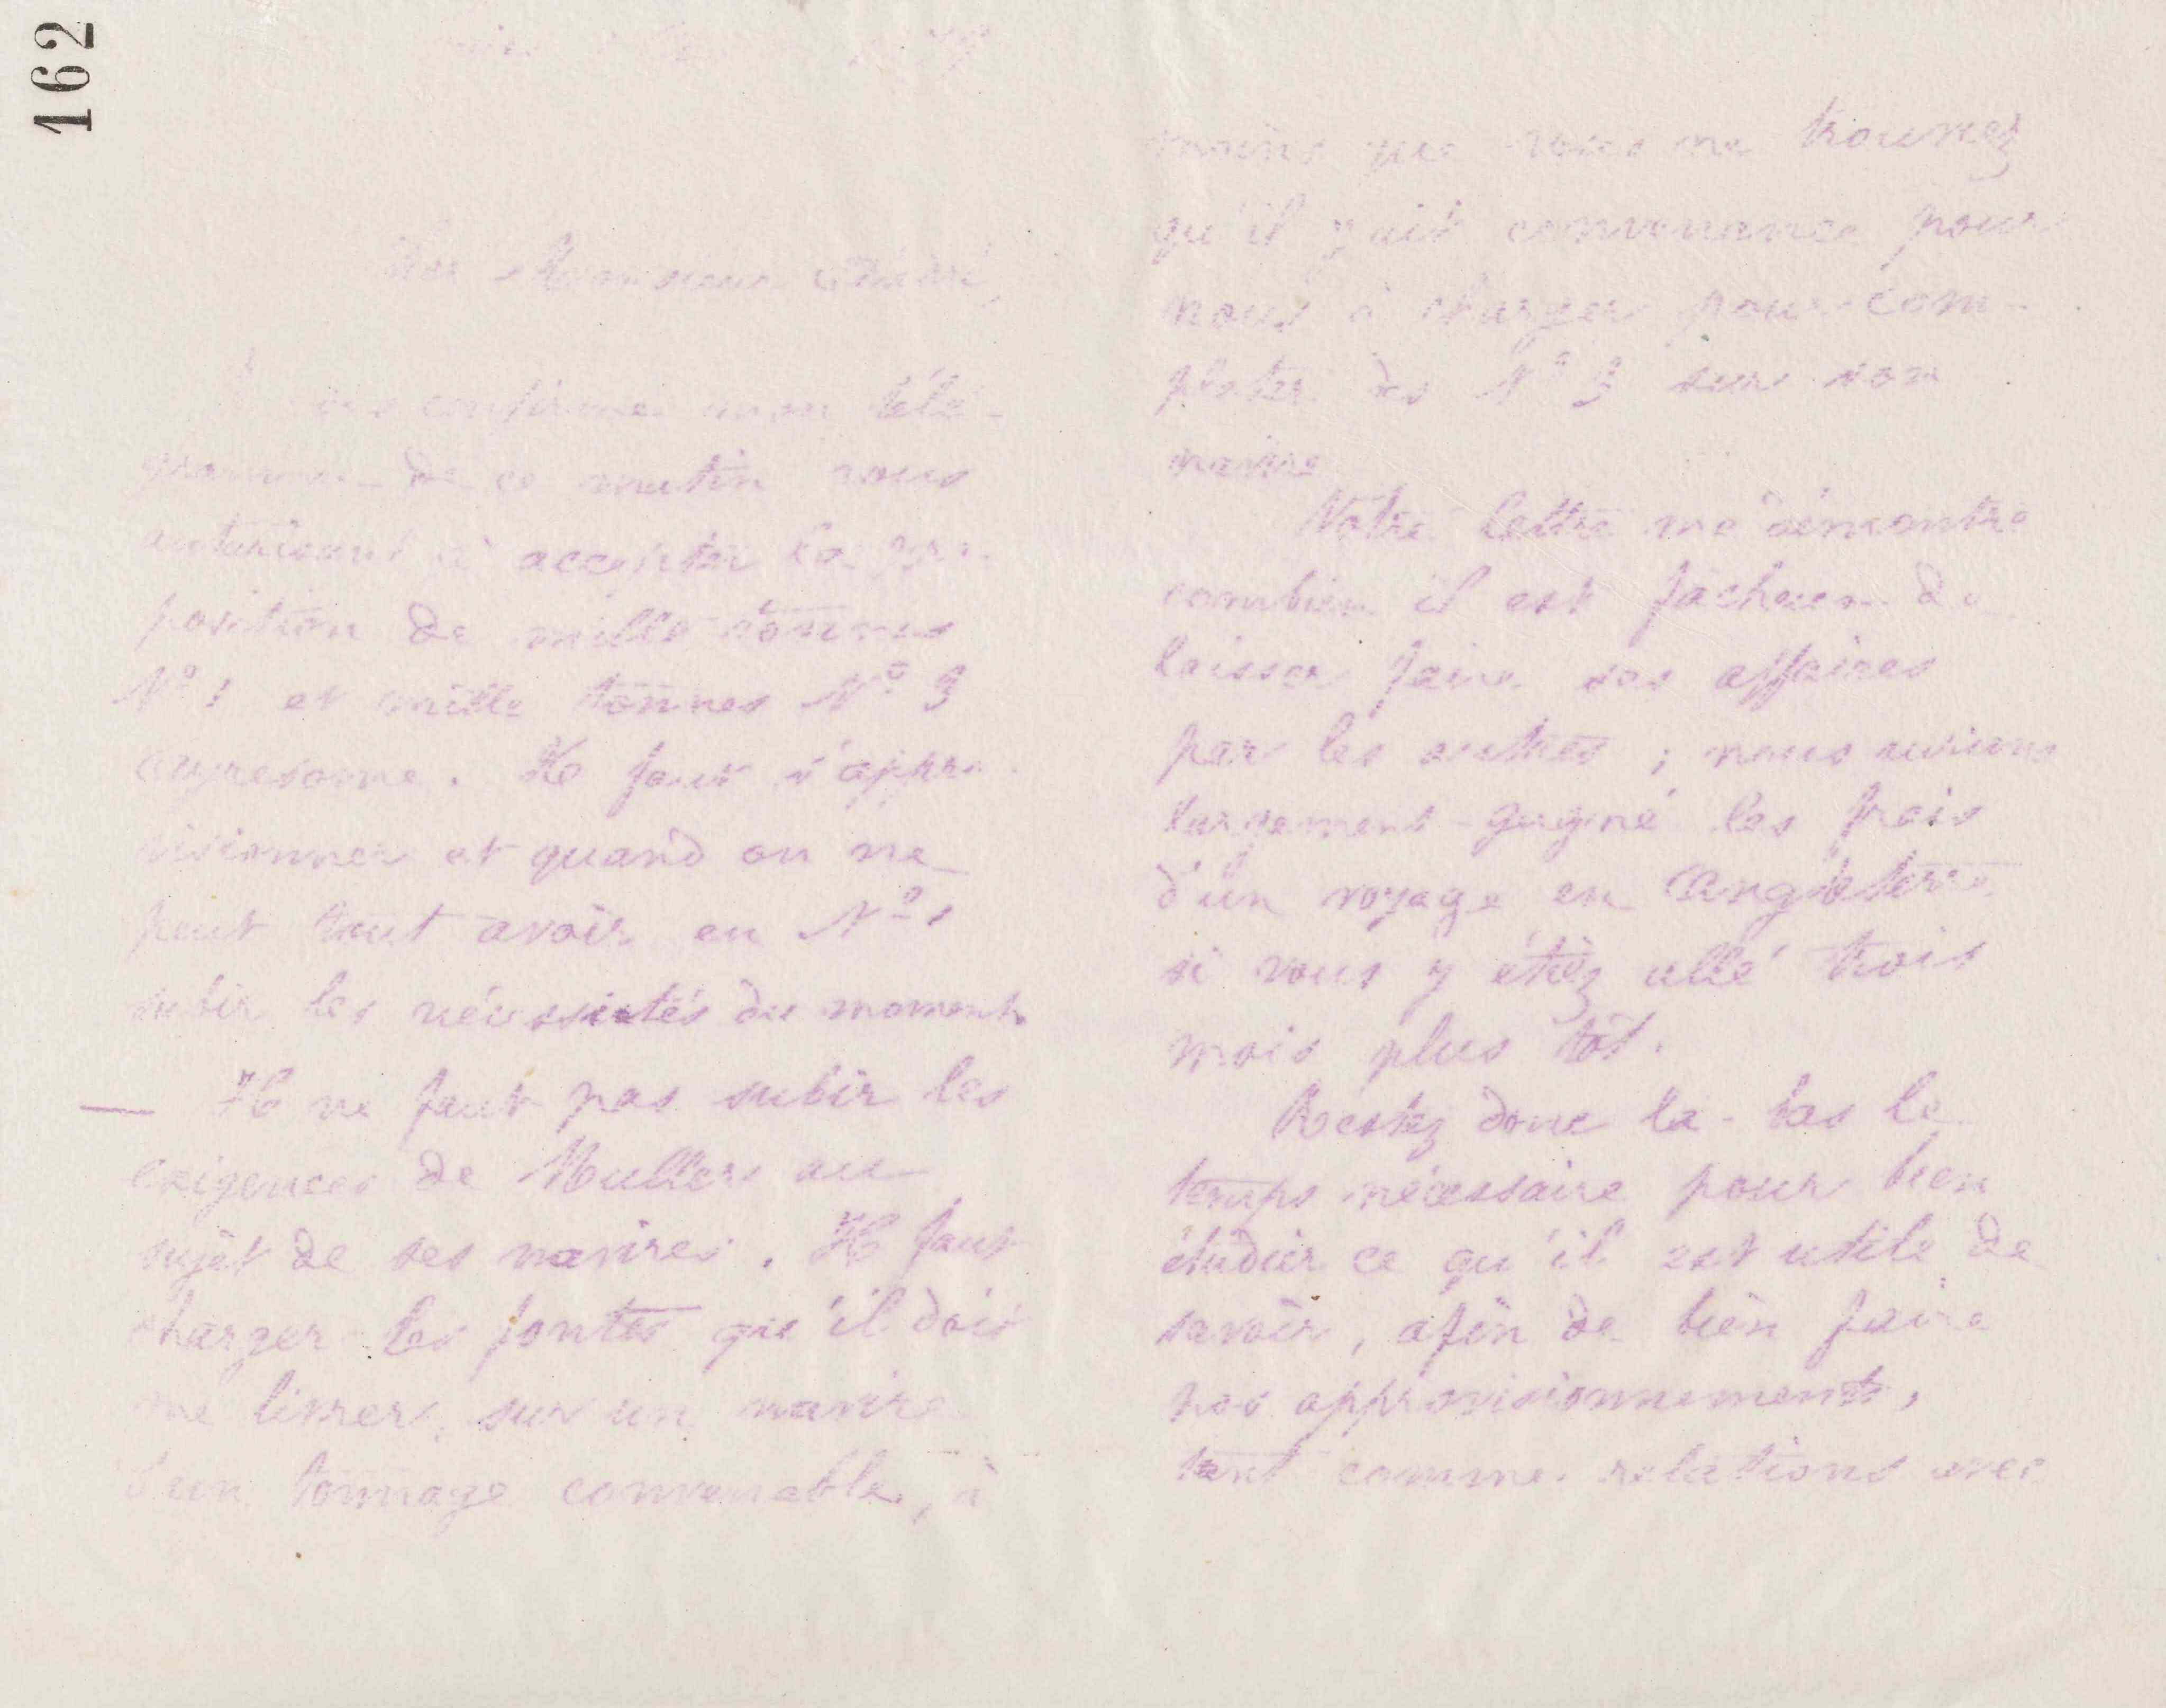 162
Monsieur André,
vous confirme mon télé-
gramme de ce matin vous
autorisant à accepter la pro-
position de mille tonnes
Nº 1 et mille tonnes Nº 3
ayresome. Il faut s'appro-
visionner et quand on ne
peut tout avoir en Nº 1
subir les nécessités du moment
— Il ne faut pas subir les
exigences de Mullers au
sujet de ses navires. Il faut
charger les fontes qu'il doit
me livrer, sur un navire
d'un tonnage convenable, à
moins que vous ne trouviez
qu'il y ait convenance pour
nous à charger pour com-
pléter des Nº 3 sur son
navire
Votre lettre me démontre
combien il est fâcheux de
laisser faire ses affaires
par les autres ; nous aurions
largement gagné les frais
d'un voyage en Angleterre
si vous y étiez allé trois
mois plus tôt.
Restez donc là-bas le
temps nécessaire pour bien
étudier ce qu'il est utile de
savoir, afin de bien faire
nos approvisionnements,
tant comme relations avec